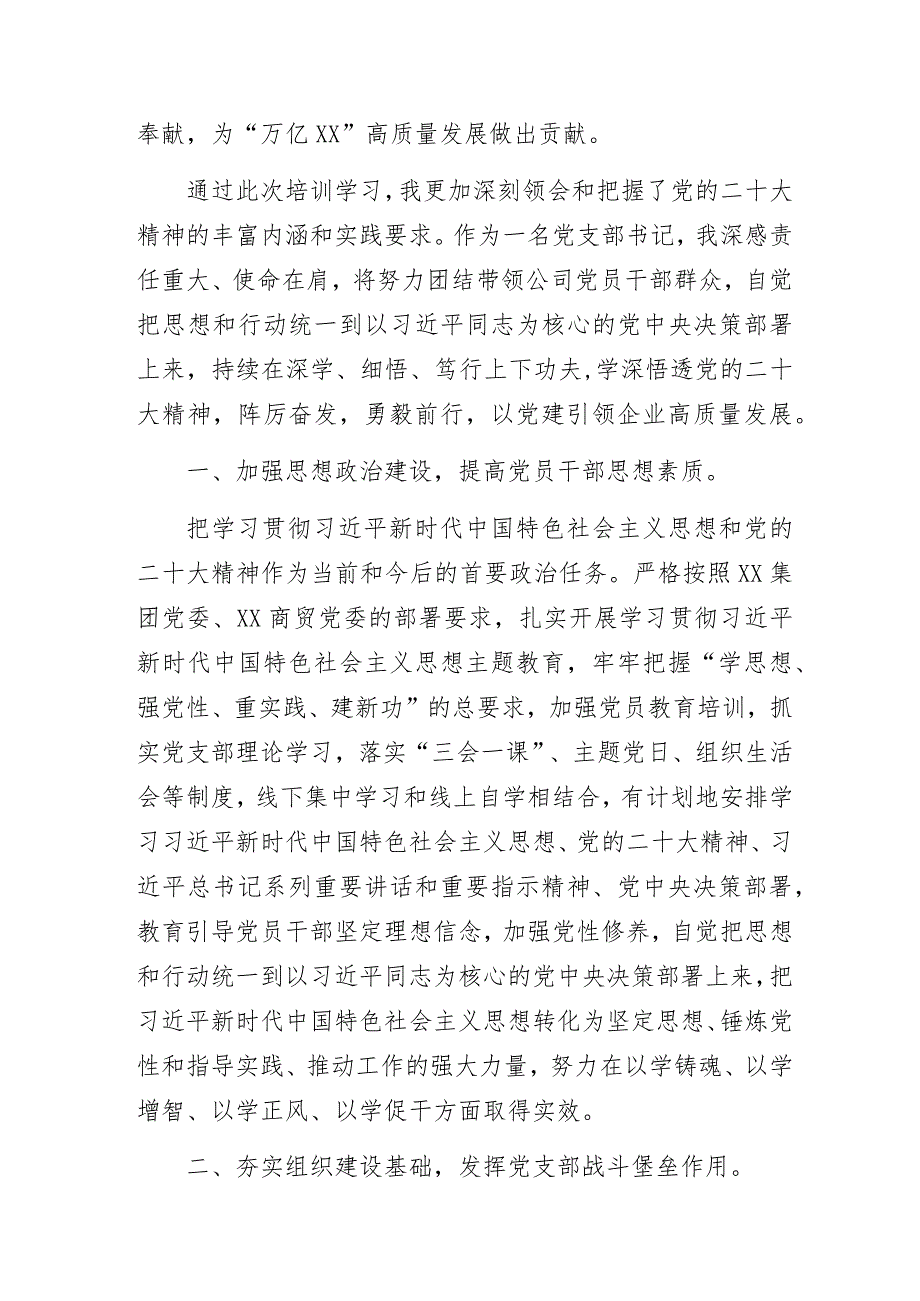 奉献，为“万亿 XX”高质量发展做出贡献。
通过此次培训学习,我更加深刻领会和把握了党的二十大
精神的丰富内涵和实践要求。作为一名党支部书记，我深感责
任重大、使命在肩，将努力团结带领公司党员干部群众，自觉
把思想和行动统一到以习近平同志为核心的党中央决策部署
上来，持续在深学、细悟、笃行上下功夫,学深悟透党的二十
大精神，阵厉奋发，勇毅前行，以党建引领企业高质量发展。
一、加强思想政治建设，提高党员干部思想素质。
把学习贯彻习近平新时代中国特色社会主义思想和党的
二十大精神作为当前和今后的首要政治任务。严格按照 XX 集
团党委、XX 商贸党委的部署要求，扎实开展学习贯彻习近平
新时代中国特色社会主义思想主题教育，牢牢把握“学思想、
强党性、重实践、建新功”的总要求，加强党员教育培训，抓
实党支部理论学习，落实“三会一课”、主题党日、组织生活
会等制度，线下集中学习和线上自学相结合，有计划地安排学
习习近平新时代中国特色社会主义思想、党的二十大精神、习
近平总书记系列重要讲话和重要指示精神、党中央决策部署，
教育引导党员干部坚定理想信念，加强党性修养，自觉把思想
和行动统一到以习近平同志为核心的党中央决策部署上来，把
习近平新时代中国特色社会主义思想转化为坚定思想、锤炼党
性和指导实践、推动工作的强大力量，努力在以学铸魂、以学
增智、以学正风、以学促干方面取得实效。
二、夯实组织建设基础，发挥党支部战斗堡垒作用。